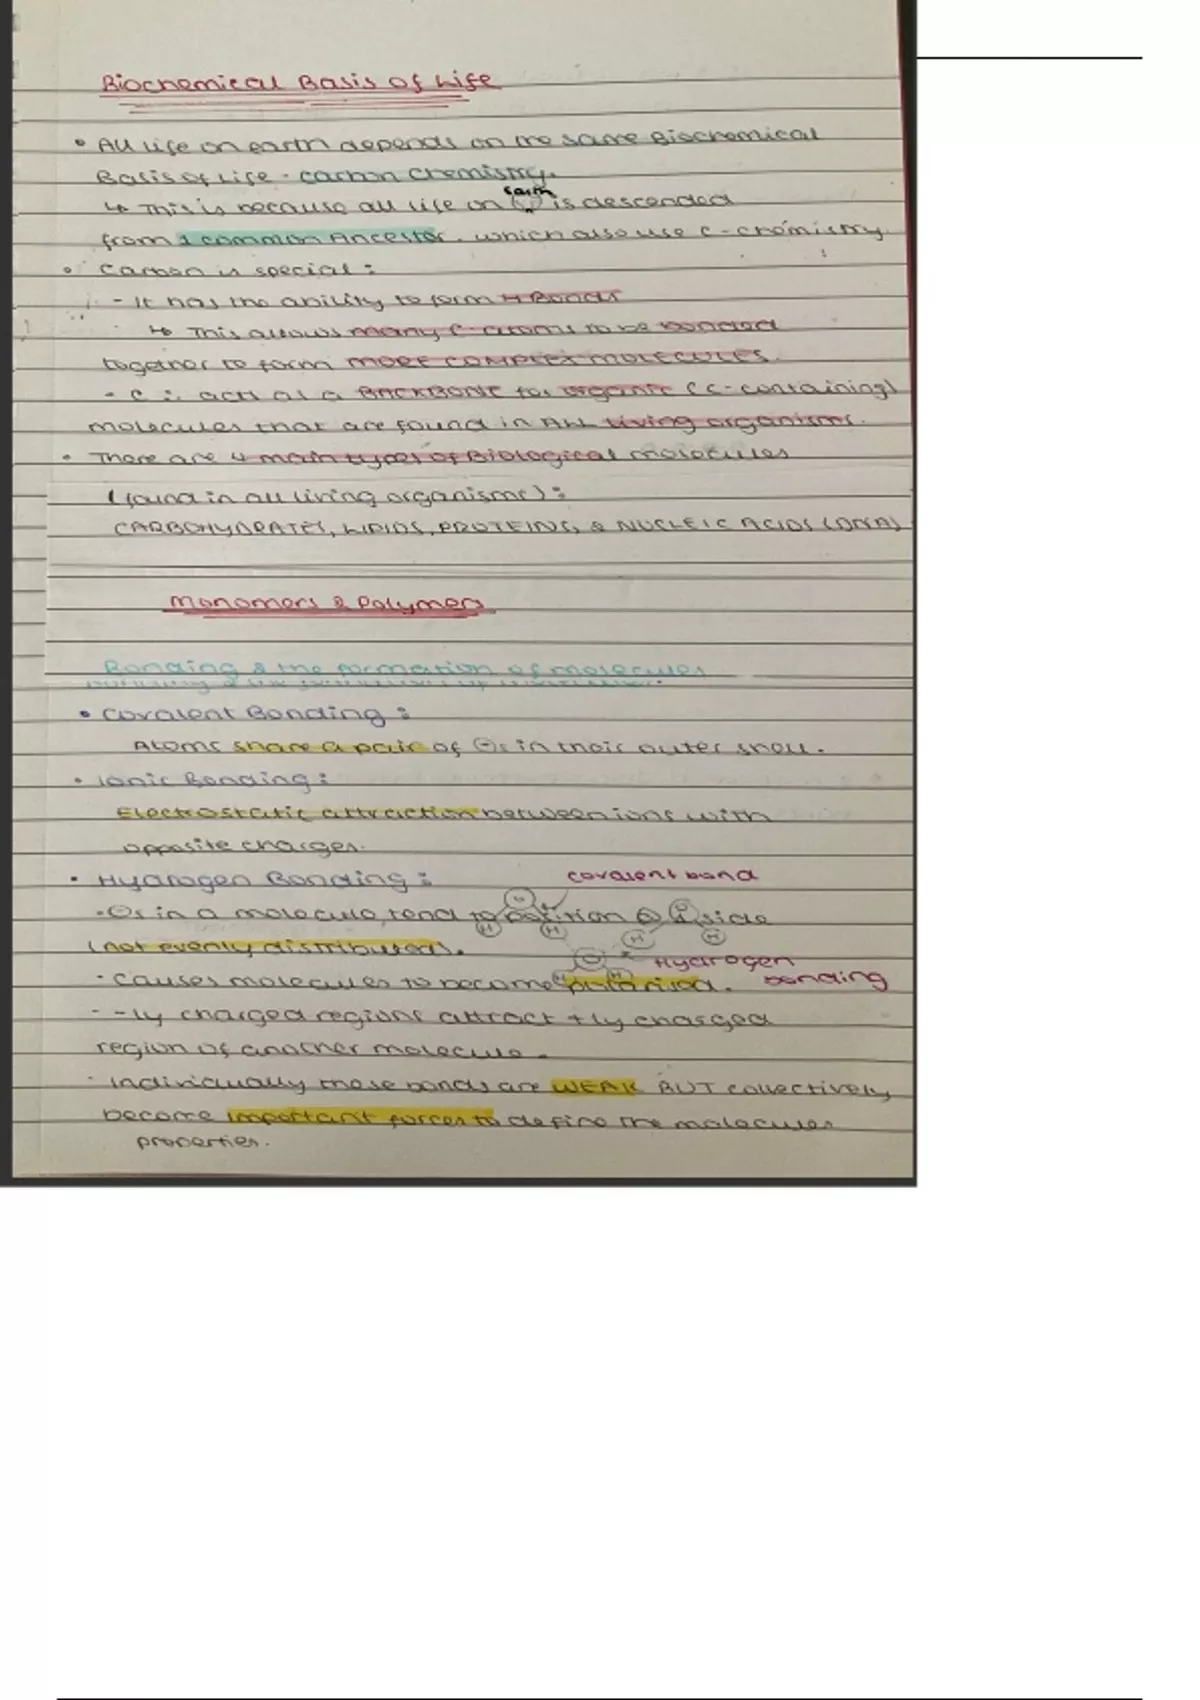 Biochemical Basis of Life
• All life on earth depends on the same Biochemical
Basis of Life - carbon chemistry.
↳ This is because all life on earth is descended
from 1 common Ancestor. which also use C-chemistry.
• Carbon is special:
- It has the ability to form 4 Bonds
↳ This allows many C-atoms to be bonded
together to form MORE COMPLEX MOLECULES.
- C ∴ acts as a BACKBONE for organic (C-containing)
molecules that are found in ALL living organisms.
• There are 4 main types of Biological molecules
(found in all living organisms):
CARBOHYDRATES, LIPIDS, PROTEINS, & NUCLEIC ACIDS (DNA)
Monomers & Polymers
Bonding & the formation of molecules
• Covalent Bonding:
Atoms share a pair of ⊖s in their outer shell.
• Ionic Bonding:
Electrostatic attraction between ions with
opposite charges.
• Hydrogen Bonding:
covalent bond
- ⊖s in a molecule tend to position @ 1 side
(not evenly distributed).
Hydrogen
bonding
- Causes molecules to become polarised.
- -ly charged regions attract +ly charged
region of another molecule.
- Individually these bonds are WEAK BUT collectively
become important forces to define the molecules
properties.
O
H
H
O
H
H
O
H
H